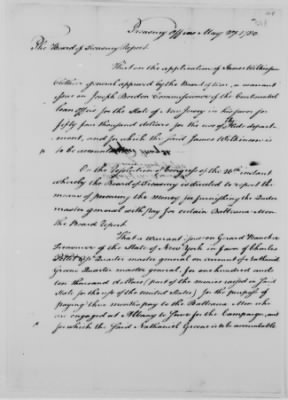 Treasury Office May 27. 1780
The Board of Treasury Report.
That on the application of James Wilkinson
Clothier general approved by the Board of War, a warrant
issue on Joseph Borden Commissioner of the Continental
Loan Office for the State of New Jersey in his favor for
fifty four thousand dollars for the use of his depart-
ment, and for which the said James Wilkinson is
to be accountable
On the Resolution of Congress of the instant
whereby the Board of Treasury is directed to report the
means of procuring the Money for furnishing the Quarter
master general with Pay for certain Batteaux Men
the Board Report
That a warrant issue on Gerard Bancker
Treasurer of the State of New York in favor of Charles
Pettit Quarter master general on account of Nathaniel
Greene Quarter master general, for one hundred and
ten thousand dollars, (part of the monies raised in said
State for the use of the United States) for the purpose of
paying three months pay to the Batteaux Men who
are engaged at Albany to serve for the Campaign, and
for which the said Nathaniel Greene is to be accountable